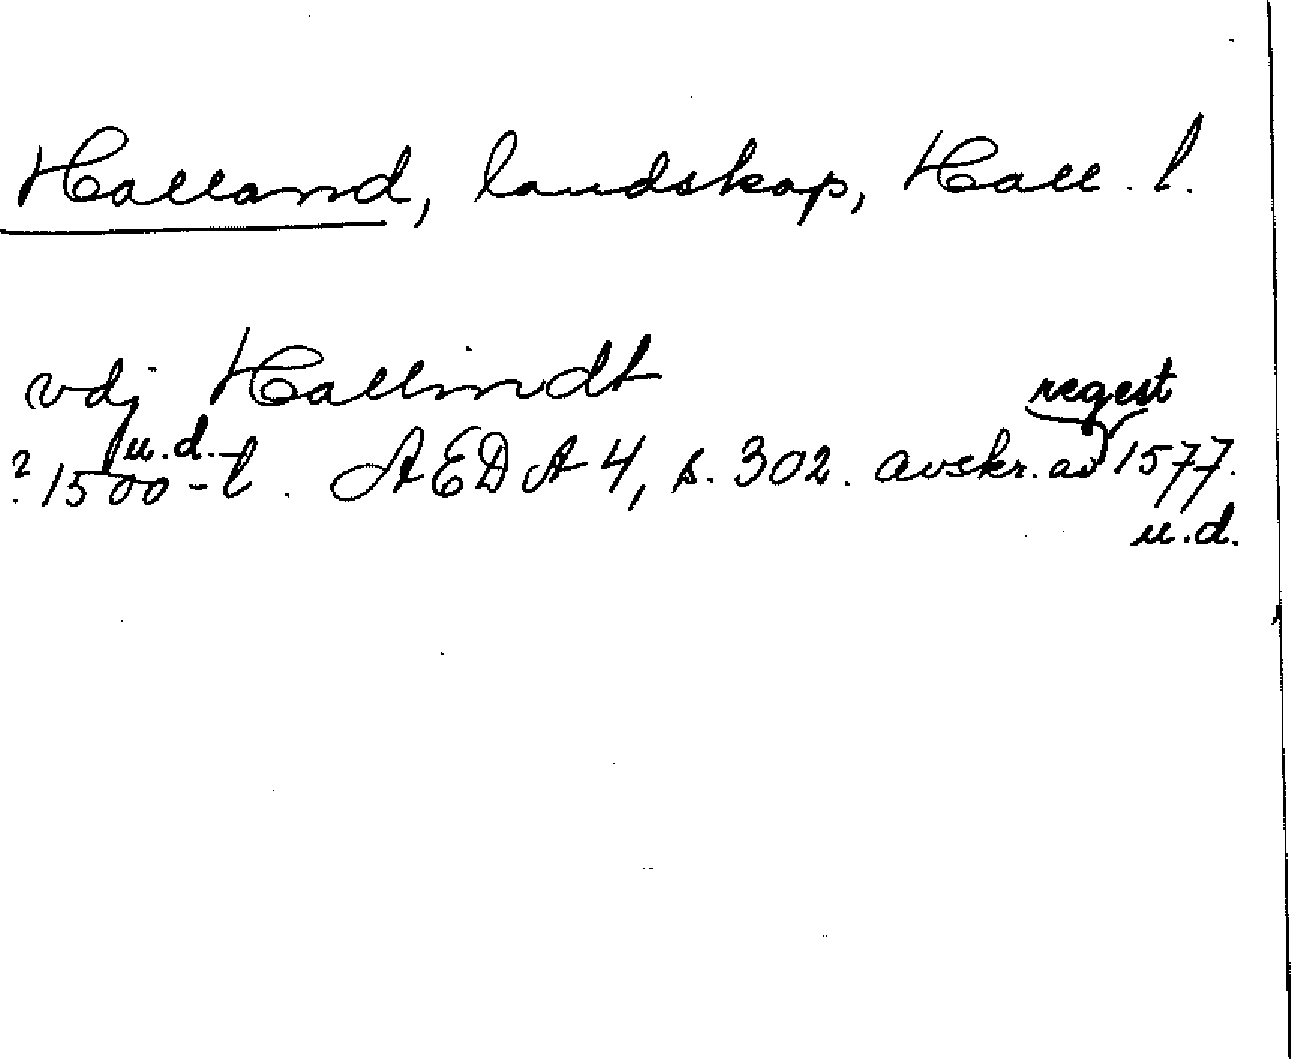 Halland, landskap, Hall. l.
vdj Hallindt
regest
u.d.
? 1500-t. AEDA 4, s. 302. avskr. av 1577.
u.d.